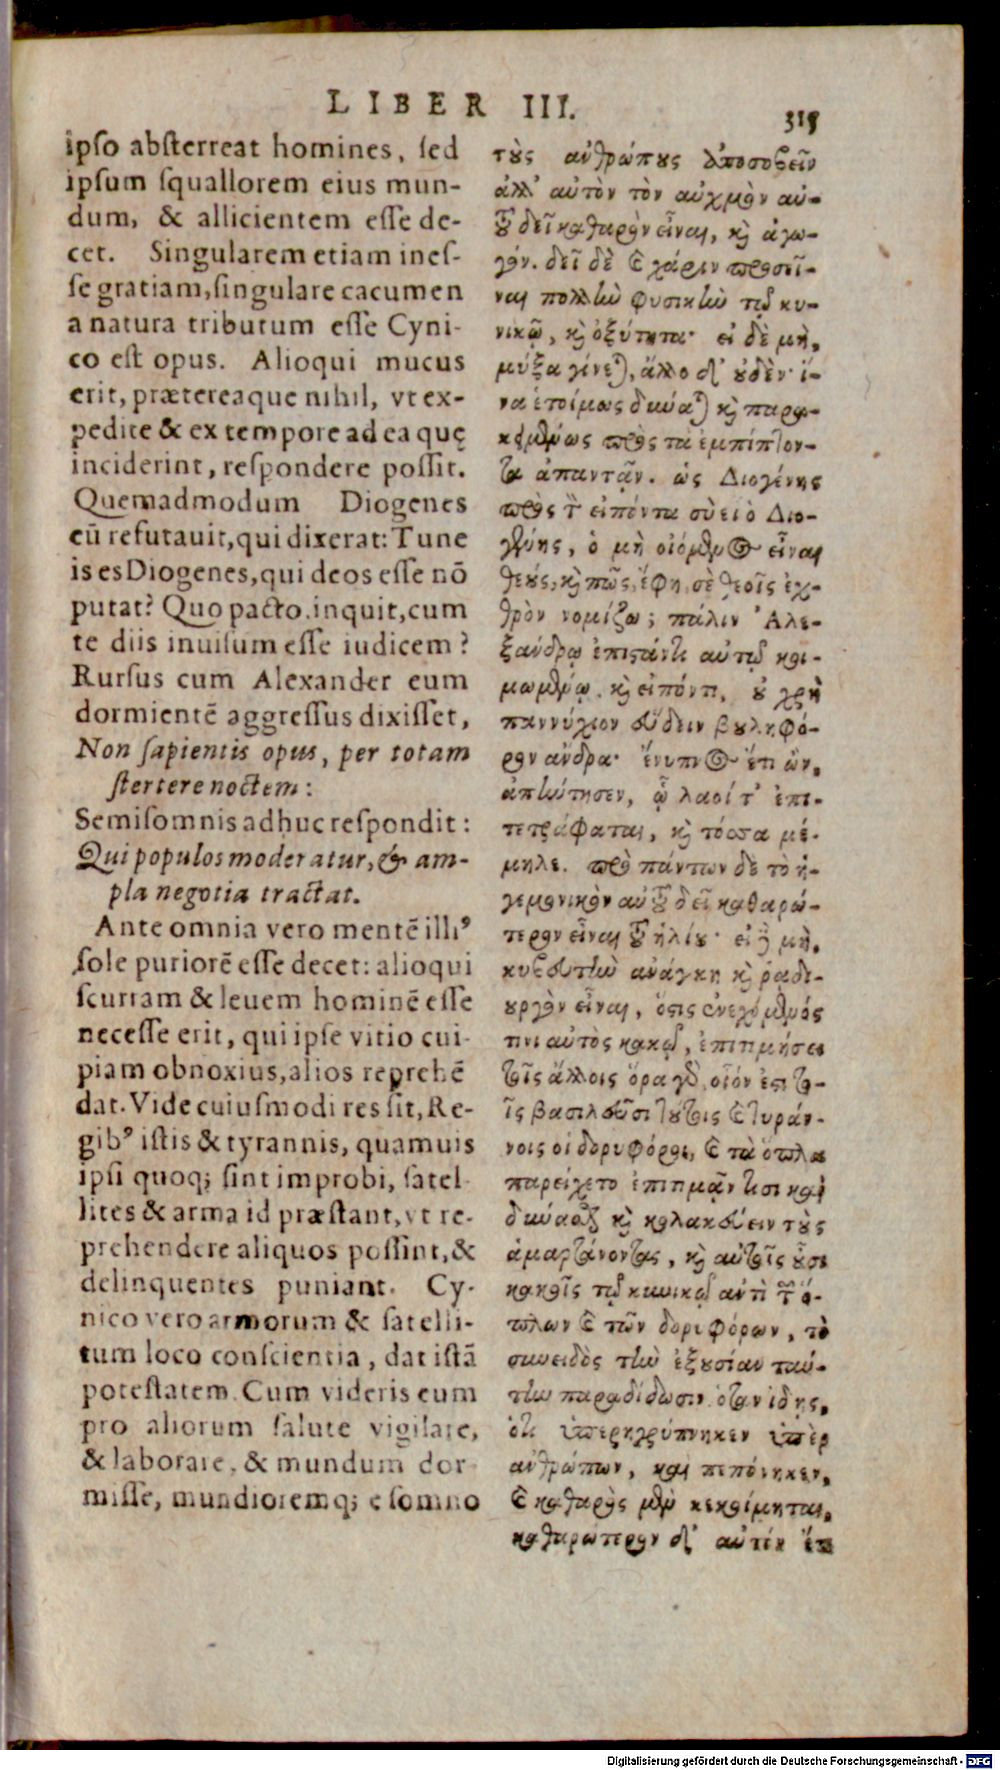 LIBER III.
315
ipso absterreat homines, sed
ipsum squallorem eius mun-
dum, & allicientem esse de-
cet. Singularem etiam ines-
se gratiam, singulare cacumen
a natura tributum esse Cyni-
co est opus. Alioqui mucus
erit, prætereaque nihil, vt ex-
pedite & ex tempore ad ea quę
inciderint, respondere possit.
Quemadmodum Diogenes
eū refutauit, qui dixerat: Tune
is es Diogenes, qui deos esse nō
putat? Quo pacto, inquit, cum
te diis inuisum esse iudicem?
Rursus cum Alexander eum
dormientē aggressus dixisset,
Non sapientis opus, per totam
stertere noctem:
Semisomnis adhuc respondit:
Qui populos moderatur, & am-
pla negotia tractat.
Ante omnia vero mentē illiꝰ
sole puriorē esse decet: alioqui
scurram & leuem hominē esse
necesse erit, qui ipse vitio cui-
piam obnoxius, alios reprehē
dat. Vide cuiusmodi res sit, Re-
gibꝰ istis & tyrannis, quamuis
ipsi quoq; sint improbi, satel-
lites & arma id præstant, vt re-
prehendere aliquos possint, &
delinquentes puniant. Cy-
nico vero armorum & satelli-
tum loco conscientia, dat istā
potestatem. Cum videris eum
pro aliorum salute vigilare,
& laborare, & mundum dor-
misse, mundioremq; e somno
τοὺς ἀνθρώπους ἀποσοβεῖν
ἀλλ' αὐτὸν τὸν αὐχμὸν αὐ-
τοῦ δεῖ καθαρὸν εἶναι, καὶ ἀγω-
γόν. δεῖ δὲ καὶ χάριν προσεῖ-
ναι πολλὴν φυσικὴν τῷ κυ-
νικῷ, καὶ ὀξύτητα· εἰ δὲ μὴ,
μύξα γίνεται, ἄλλο δ' οὐδέν· ἵ-
να ἑτοίμως δύνηται καὶ παρα-
κειμένως πρὸς τὰ ἐμπίπτον-
τα ἀπαντᾷν. ὡς Διογένης
πρὸς τὸν εἰπόντα σὺ εἶ ὁ Διο-
γένης, ὁ μὴ οἰόμενος εἶναι
θεούς, καὶ πῶς, ἔφη, σὲ θεοῖς ἐχ-
θρὸν νομίζω; πάλιν Ἀλε-
ξάνδρῳ ἐπιστάντι αὐτῷ κοι-
μωμένῳ, καὶ εἰπόντι, οὐ χρὴ
παννύχιον εὕδειν βουληφό-
ρον ἄνδρα· ἔνυπνος ἔτι ὢν,
ἀπήντησεν, ᾧ λαοί τ' ἐπι-
τετράφαται, καὶ τόσσα μέ-
μηλε. πρὸ πάντων δὲ τὸ ἡ-
γεμονικὸν αὐτοῦ δεῖ καθαρώ-
τερον εἶναι τοῦ ἡλίου· εἰ δὲ μὴ,
κυβευτὴν ἀνάγκη καὶ ῥᾳδι-
ουργὸν εἶναι, ὅστις ἐνεχόμενός
τινι αὐτὸς κακῷ, ἐπιτιμήσει
τοῖς ἄλλοις ὅρα γὰρ, οἷόν ἐστι το-
ῖς βασιλεῦσι τούτοις καὶ τυράν-
νοις οἱ δορυφόροι, καὶ τὰ ὅπλα
παρείχετο ἐπιτιμᾷν τισι καὶ
δύνασθαι καὶ κολακεύειν τοὺς
ἁμαρτάνοντας, καὶ αὐτοῖς οὖσι
κακοῖς τῷ κυνικῷ ἀντὶ τῶν ὅ-
πλων καὶ τῶν δορυφόρων, τὸ
συνειδὸς τὴν ἐξουσίαν ταύ-
την παραδίδωσιν. ὅταν ἴδῃς,
ὅτι ὑπερηγρύπνηκεν ὑπὲρ
ἀνθρώπων, καὶ πεπόνηκεν,
καὶ καθαρὸς μὲν κεκοίμηται,
καθαρώτερον δ' αὐτὸν ἔτι
Digitalisierung gefördert durch die Deutsche Forschungsgemeinschaft - DFG